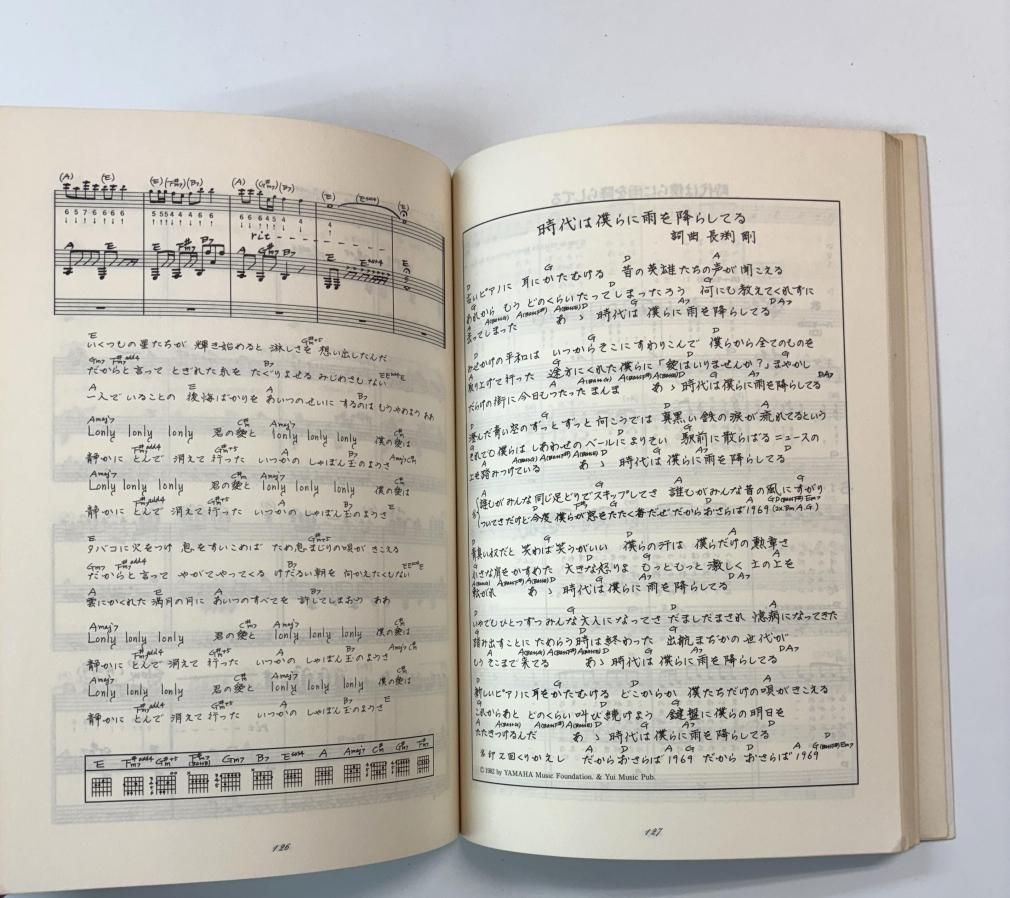 (A) (E) (E) (F#m7) (B7) (A) (G#m7) (B7) (E) (Esus4) (E)
6 5 7 6 6 6 6 5 5 5 4 4 4 6 6 6 6 6 4 5 4 4 4
rit
A E E F#m7 B7 A G#m7 B7 E Esus4 E
E G#+5
いくつもの星たちが 輝き始めると 淋しさを 想い出したんだ
Gm7 F#m7add4 B7 E Esus4 E
だからと言って とぎれた糸を たぐりよせる みじめさもない
A E A B7
一人でいることの 後悔ばかりを あいつのせいに するのは もうやめよう ああ
Amaj7 C#m Amaj7 C#m
Lonly lonly lonly 君の愛と lonly lonly lonly 僕の愛は
F#m7add4 G#m+5 A B7 Amaj7 C#m
静かに とんで 消えて 行った いつかの しゃぼん玉のようさ
Amaj7 C#m Amaj7 C#m
Lonly lonly lonly 君の愛と lonly lonly lonly 僕の愛は
F#m7add4 G#m+5 A B7 E
静かに とんで 消えて 行った いつかの しゃぼん玉のようさ
E G#m+5
タバコに 火をつけ 息をすいこめば ため息まじりの唄が きこえる
Gm7 F#m7add4 B7 E Esus4 E
だからと言って やがてやってくる けだるい朝を 向かえたくもない
A E A B7
雲にかくれた 満月の月に あいつのすべてを 許してしまおう ああ
Amaj7 C#m Amaj7 C#m
Lonly lonly lonly 君の愛と lonly lonly lonly 僕の愛は
F#m7add4 G#m+5 A B7 Amaj7 C#m
静かに とんで 消えて 行った いつかの しゃぼん玉のようさ
Amaj7 C#m Amaj7 C#m
Lonly lonly lonly 君の愛と lonly lonly lonly 僕の愛は
F#m7add4 G#m+5 A B7 E
静かに とんで 消えて 行った いつかの しゃぼん玉のようさ
E F#m7add4 G#m+5 Gm7 B7 Esus4 A Amaj7 C#m G#m7 F#m7
126
時代は僕らに雨を降らしてる
詞曲 長渕 剛
D G D A
古いピアノに 耳をかたむける 昔の英雄たちの声が聞こえる
G D G
あれから もう どのくらいたってしまったろう 何にも教えてくれずに
A A(BassG) A(BassF#) A(BassE) D G A7 D A7
去ってしまった あゝ 時代は 僕らに 雨を降らしてる
D G D
みせかけの平和は いつからそこにすわりこんで 僕らから全てのものを
A G D G
取り上げて行った 途方にくれた僕らに「愛はいりませんか?」まやかし
A A(BassG) A(BassF#) A(BassE) D G A7 D A7
だらけの街に今日もつったまんま あゝ 時代は僕らに雨を降らしてる
D G D A
澄んだ青い空のずっとずっと向こうでは 真黒い鉄の涙が流れてるという
G D G
それでも僕らは しあわせのベールによりそい 駅前に散らばるニュースの
A A(BassG) A(BassF#) A(BassE) D G A7 D
上を踏みつけている あゝ 時代は 僕らに 雨を降らしてる
A G A G
誰もがみんな同じ足どりでスキップしてさ 誰もがみんな昔の風にすがり
D F#7 D A G D (BassF#) Em7
ついてきたけど今度 僕らが 怒をたたく番だぜ だからおさらば1969 (2x Bm A G)
D G D A
青臭い奴だと 笑わば笑うがいい 僕らの汗は 僕らだけの勲章さ
G D G
小さな肩をかすめた 大きな怒りよ もっともっと 激しく 土の上を
A(BassG) A(BassF#) A(BassE) D G A7 D A7
転がれ あゝ 時代は僕らに雨を降らしてる
D G D A
いやでもひとつずつ みんな大人になってさ だましだまされ 憶病になってきた
G D G
踏み出すことに ためらう時は終わった 出航まぢかの 世代が
A A(BassG) A(BassF#) A(BassE) D G A7 D A7
もうそこまで来てる あゝ 時代は 僕らに 雨を降らしてる
D G D A
新しいピアノに 耳をかたむける どこからか 僕たちだけの唄がきこえる
G D G
これからあと どのくらい 叫び続けよう 鍵盤に僕らの明日を
A A(BassG) A(BassF#) A(BassE) D G A7 D
たたきつけるんだ あゝ 時代は僕らに雨を降らしてる
A D A G D A G (BassF#) Em7
くりかえし だからおさらば 1969 だから おさらば 1969
© 1982 by YAMAHA Music Foundation. & Yui Music Pub.
127